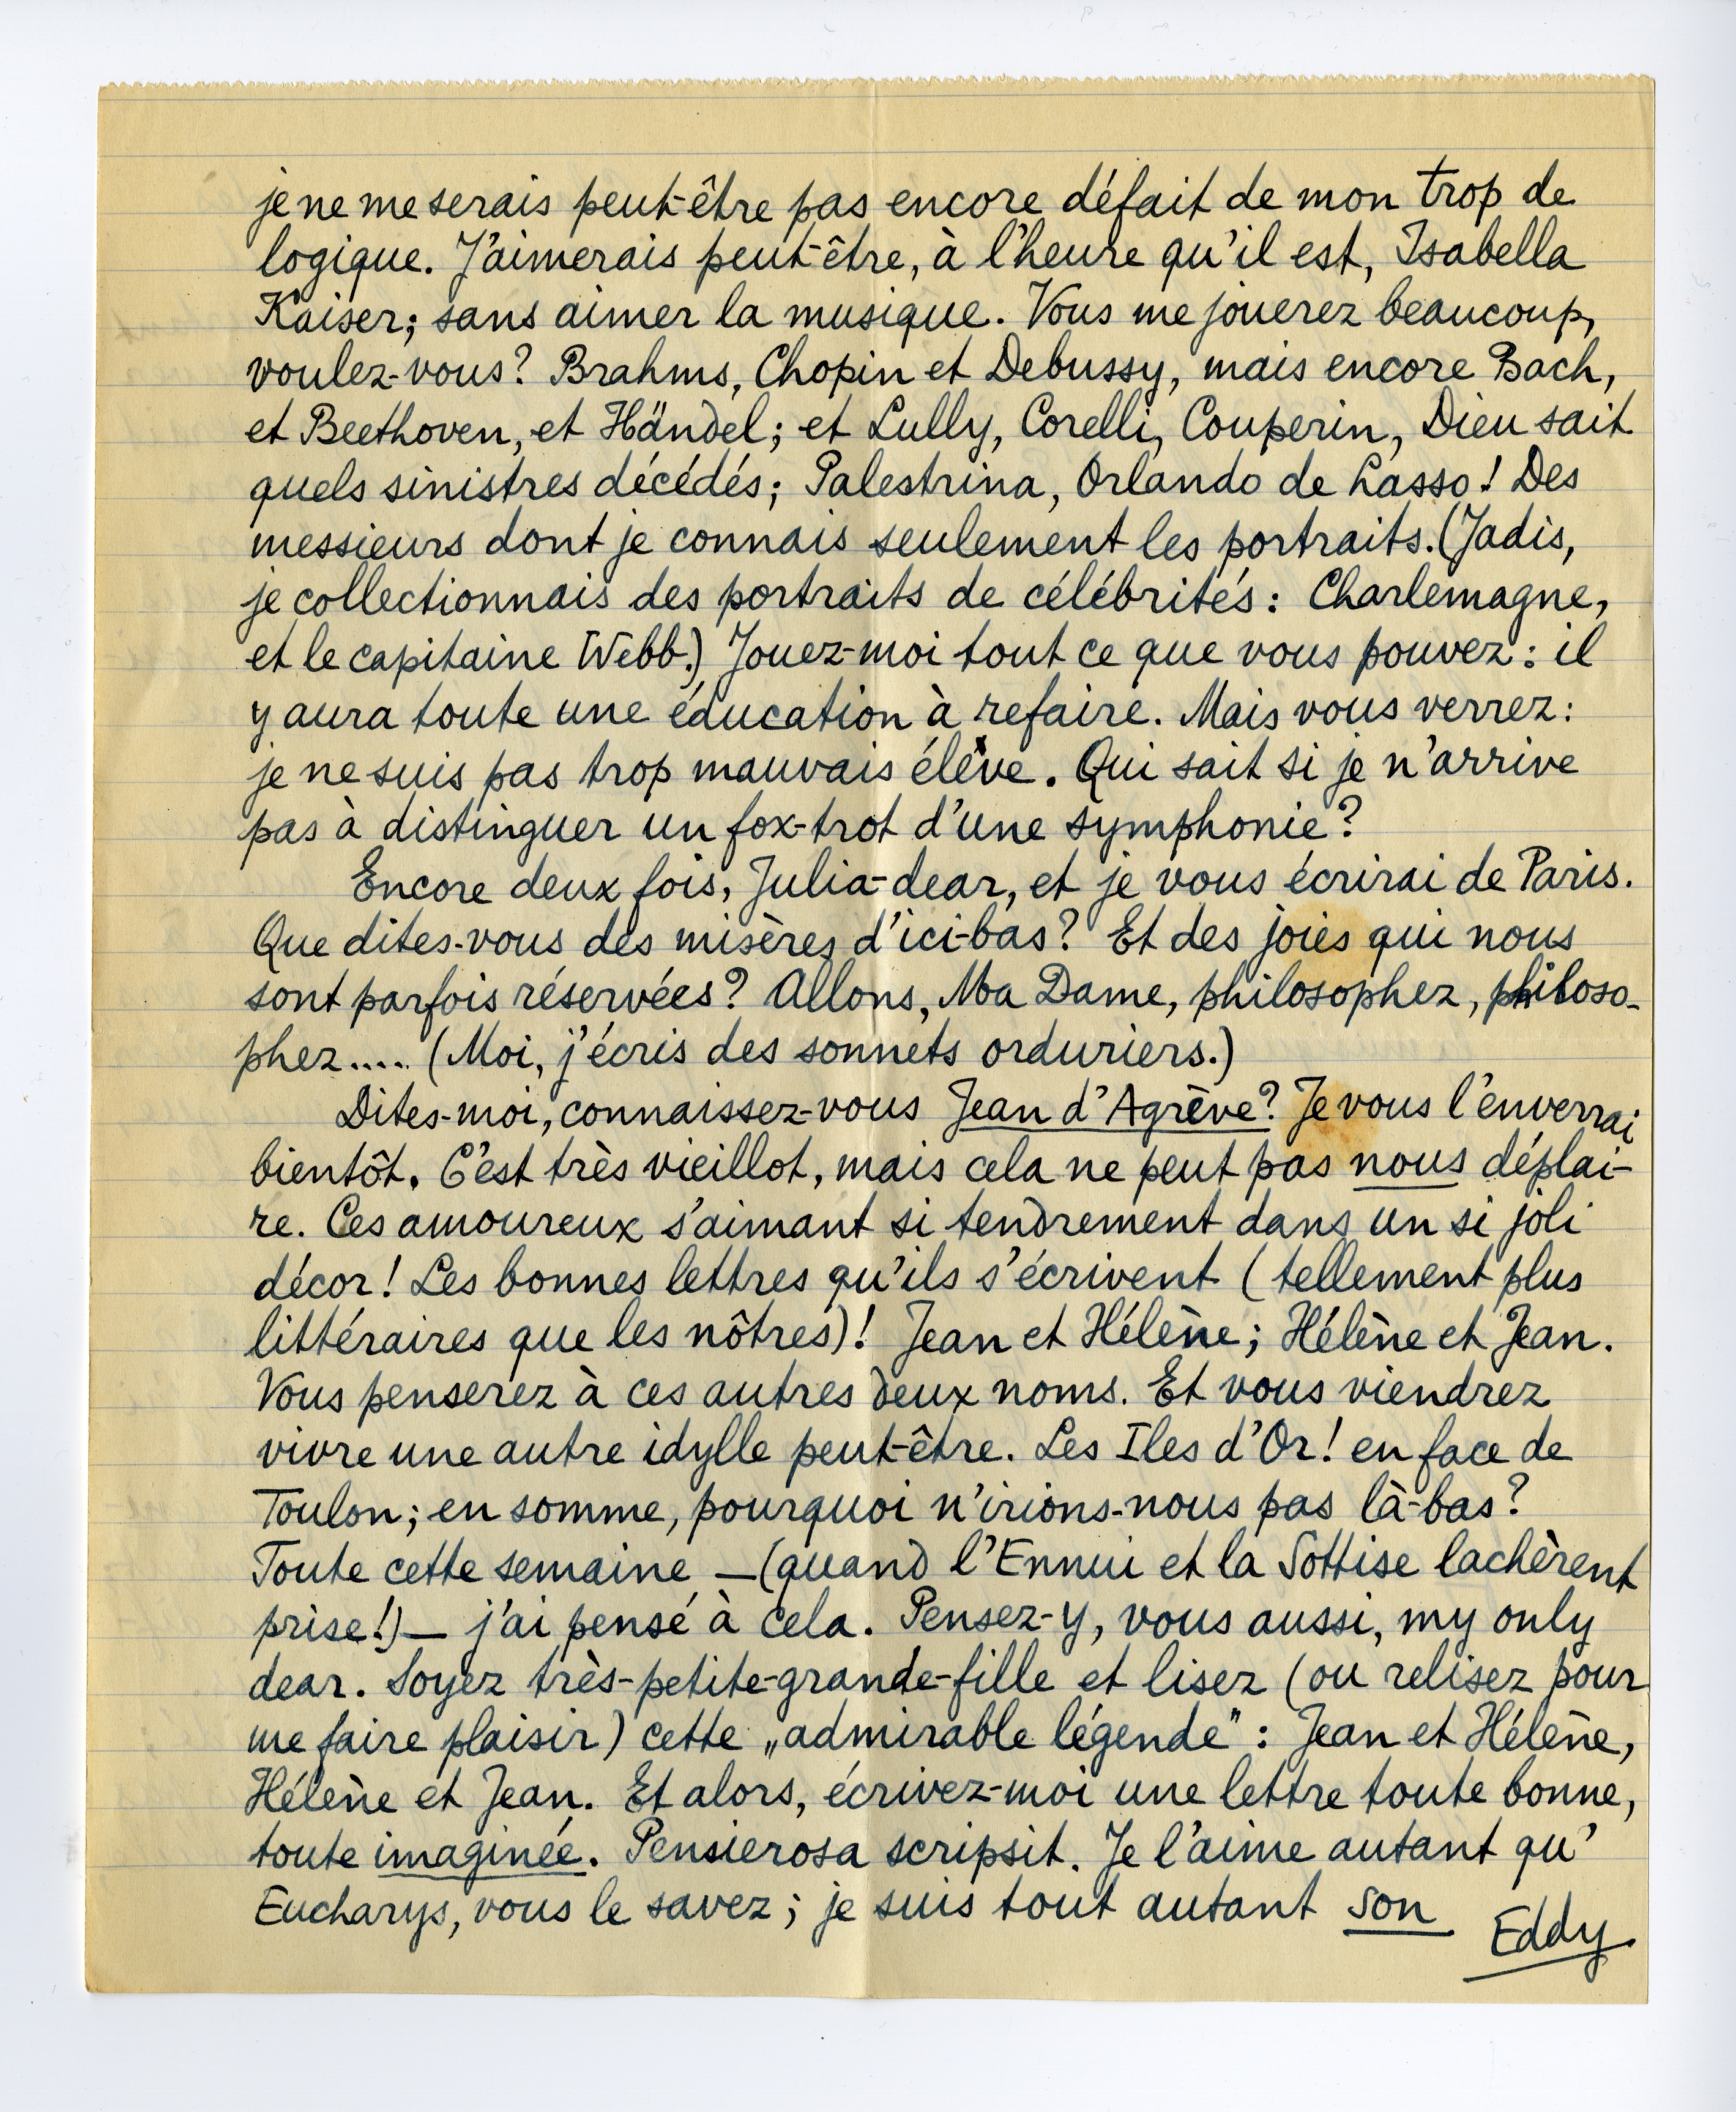 je ne me serais peut-être pas encore défait de mon trop de
logique. J'aimerais peut-être, à l'heure qu'il est, Isabella
Kaiser; sans aimer la musique. Vous me jouerez beaucoup,
voulez-vous? Brahms, Chopin et Debussy, mais encore Bach,
et Beethoven, et Händel; et Lully, Corelli, Couperin, Dieu sait
quels sinistres décédés; Palestrina, Orlando de Lasso! Des
messieurs dont je connais seulement les portraits. (Jadis,
je collectionnais des portraits de célébrités: Charlemagne,
et le capitaine Webb.) Jouez-moi tout ce que vous pouvez: il
y aura toute une éducation à refaire. Mais vous verrez:
je ne suis pas trop mauvais élève. Qui sait si je n'arrive
pas à distinguer un fox-trot d'une symphonie?
Encore deux fois, Julia-dear, et je vous écrirai de Paris.
Que dites-vous des misères d'ici-bas? Et des joies qui nous
sont parfois réservées? Allons, Ma Dame, philosophez, philoso-
phez.... (Moi, j'écris des sonnets orduriers.)
Dites-moi, connaissez-vous Jean d'Agrève? Je vous l'enverrai
bientôt. C'est très vieillot, mais cela ne peut pas nous déplai-
re. Ces amoureux s'aimant si tendrement dans un si joli
décor! Les bonnes lettres qu'ils s'écrivent (tellement plus
littéraires que les nôtres)! Jean et Hélène; Hélène et Jean.
Vous penserez à ces autres deux noms. Et vous viendrez
vivre une autre idylle peut-être. Les Iles d'Or! en face de
Toulon; en somme, pourquoi n'irions-nous pas là-bas?
Toute cette semaine —(quand l'Ennui et la Sottise lachèrent
prise!)— j'ai pensé à cela. Pensez-y, vous aussi, my only
dear. Soyez très-petite-grande-fille et lisez (ou relisez pour
me faire plaisir) cette „admirable légende": Jean et Hélène,
Hélène et Jean. Et alors, écrivez-moi une lettre toute bonne,
toute imaginée. Pensierosa scripsit. Je l'aime autant qu'
Eucharys, vous le savez; je suis tout autant son
Eddy.